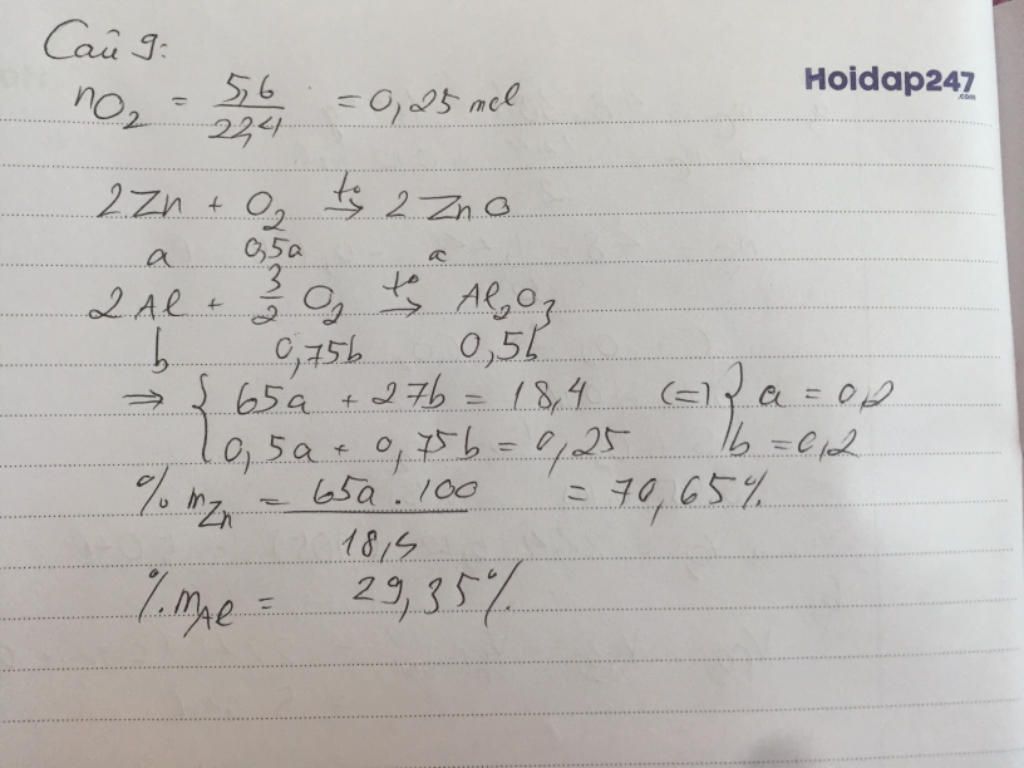 Câu 9:
Hoidap247
.com
nO₂ = 5,6/22,4 = 0,25 mol
2Zn + O₂ →(t°) 2ZnO
a 0,5a a
2Al + 3/2 O₂ →(t°) Al₂O₃
b 0,75b 0,5b
⇒ { 65a + 27b = 18,4 (=) } a = 0,2
0,5a + 0,75b = 0,25 b = 0,2
% mZn = 65a . 100 / 18,4 = 70,65%
% mAl = 29,35%